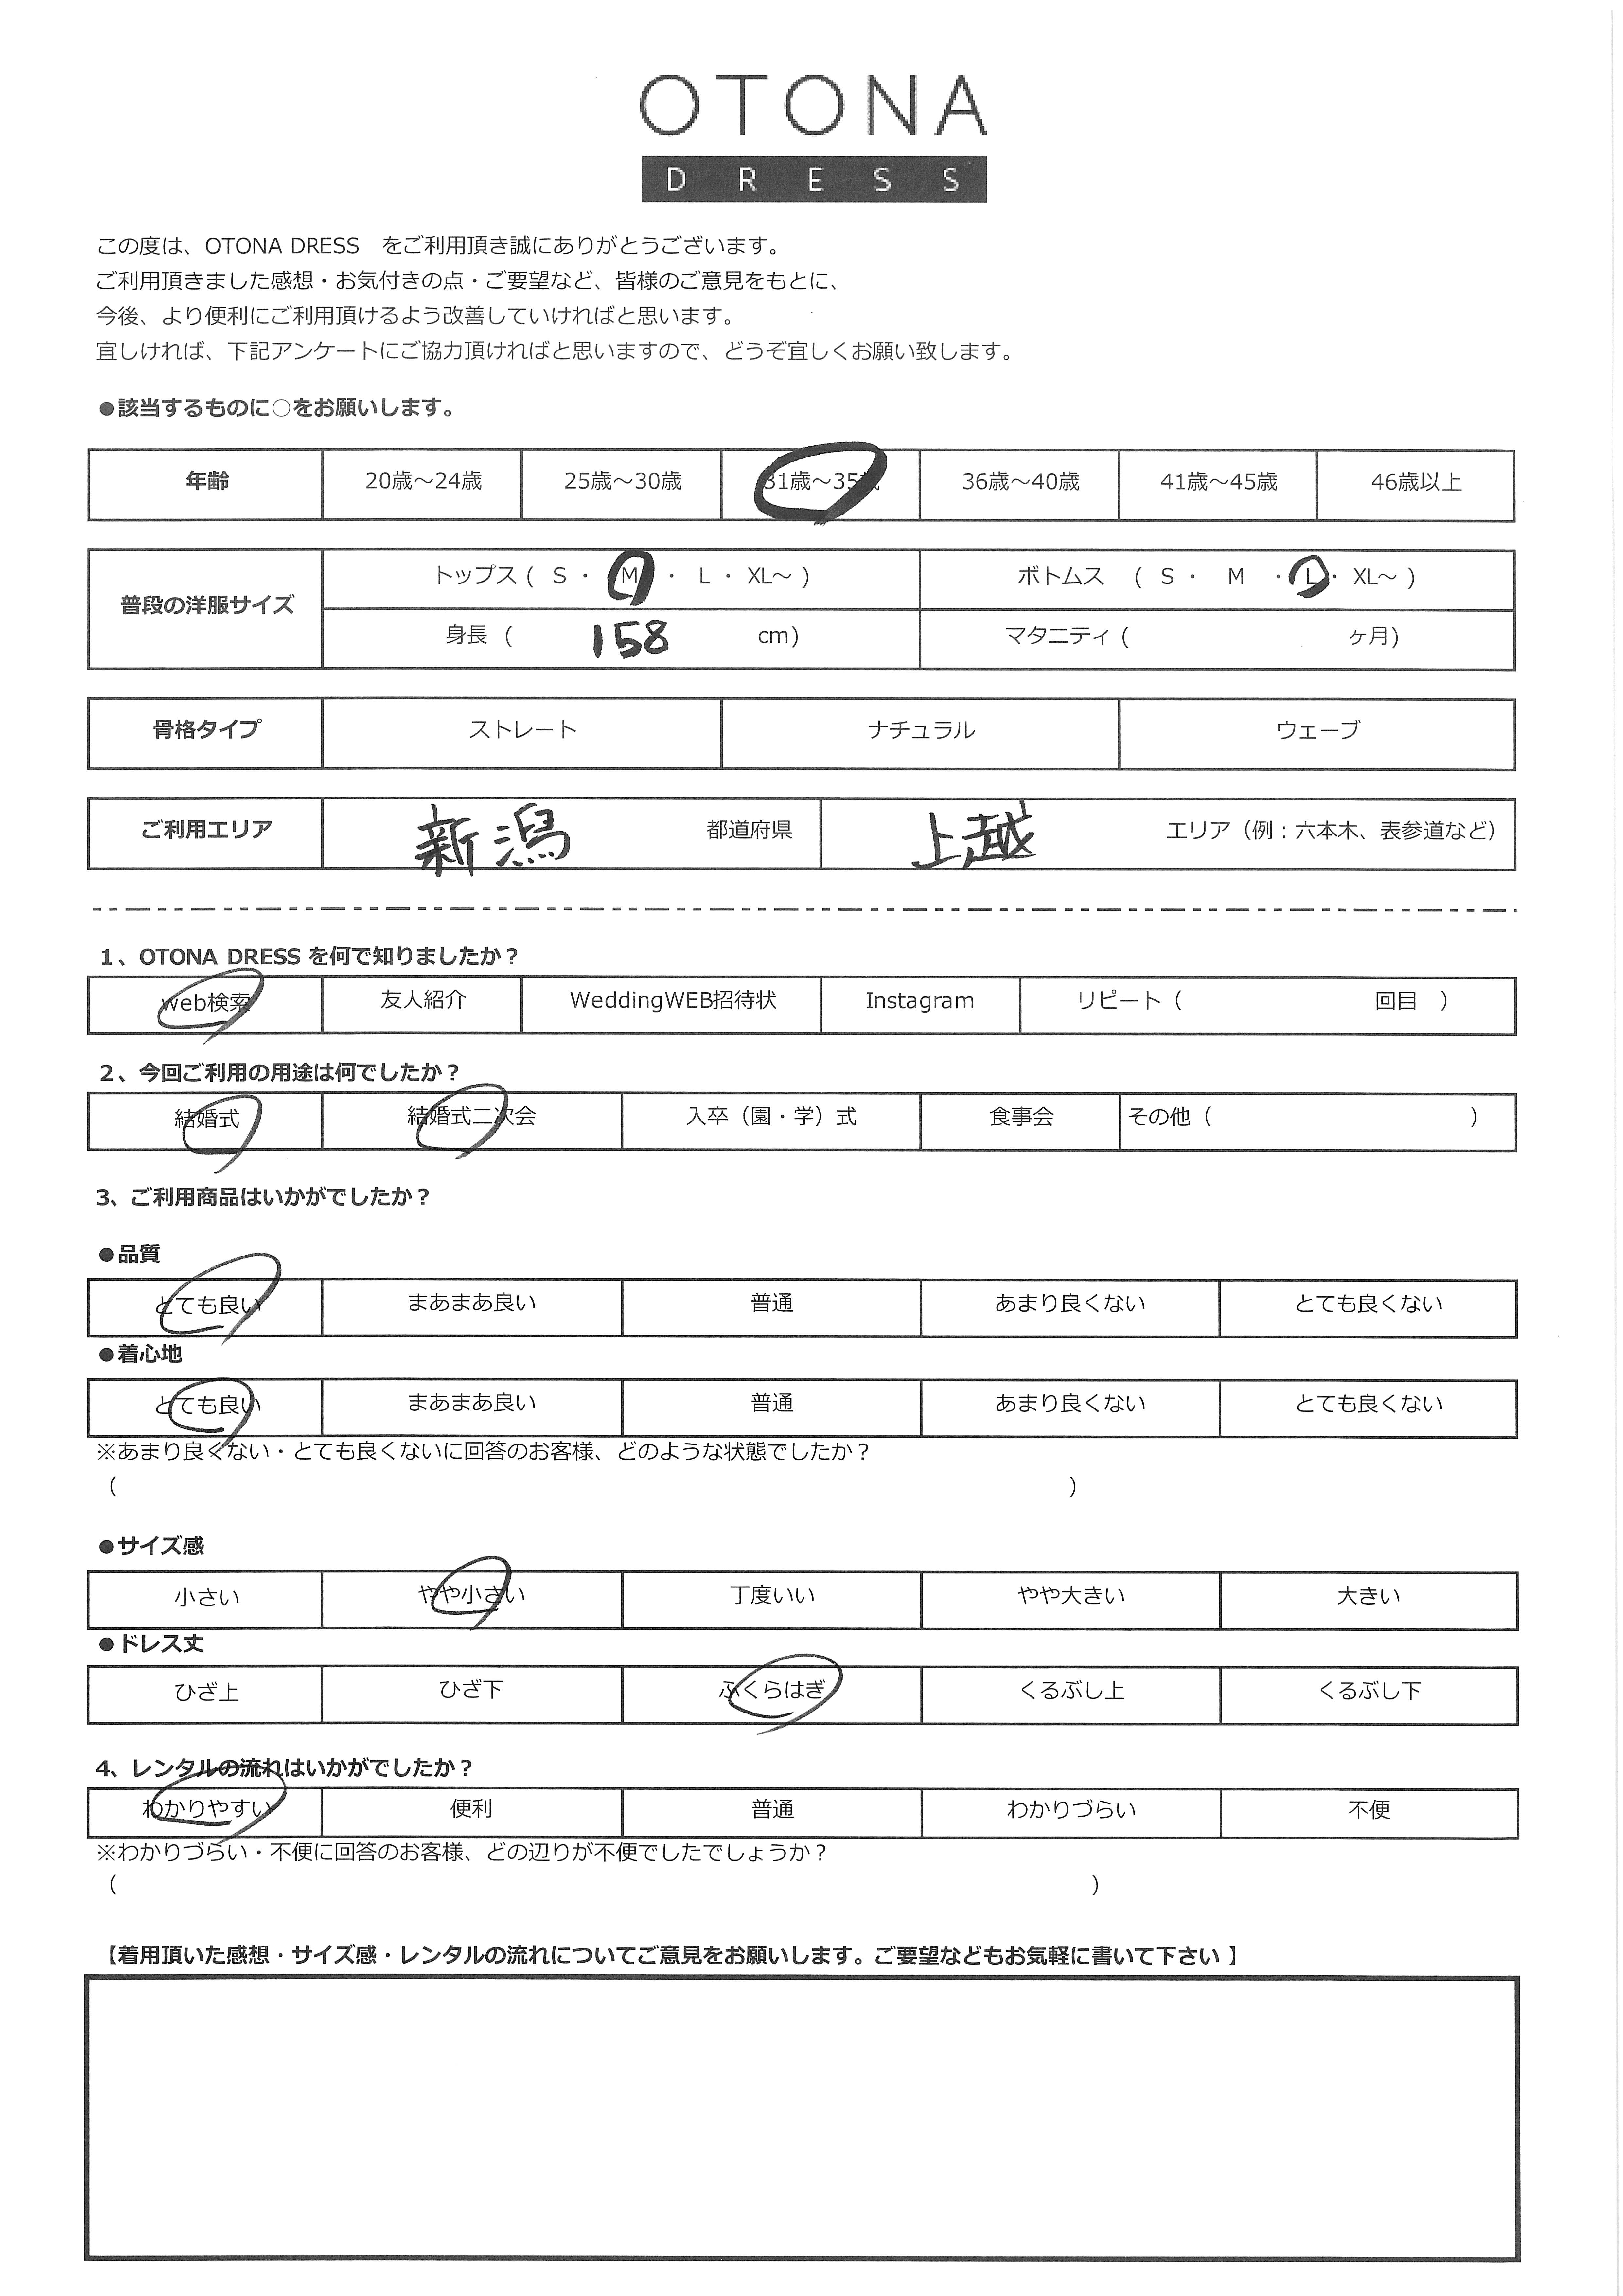 OTONA
DRESS
この度は、OTONA DRESS　をご利用頂き誠にありがとうございます。
ご利用頂きました感想・お気付きの点・ご要望など、皆様のご意見をもとに、
今後、より便利にご利用頂けるよう改善していければと思います。
宜しければ、下記アンケートにご協力頂ければと思いますので、どうぞ宜しくお願い致します。
●該当するものに○をお願いします。
年齢 20歳～24歳 25歳～30歳 31歳～35歳 36歳～40歳 41歳～45歳 46歳以上
普段の洋服サイズ トップス ( S ・ M ・ L ・ XL～ ) ボトムス ( S ・ M ・ L ・ XL～ )
身長 ( 158 cm) マタニティ ( ヶ月)
骨格タイプ ストレート ナチュラル ウェーブ
ご利用エリア 新潟 都道府県 上越 エリア（例：六本木、表参道など）
1、OTONA DRESS を何で知りましたか？
web検索 友人紹介 WeddingWEB招待状 Instagram リピート（ 回目 ）
2、今回ご利用の用途は何でしたか？
結婚式 結婚式二次会 入卒（園・学）式 食事会 その他（ ）
3、ご利用商品はいかがでしたか？
●品質
とても良い まあまあ良い 普通 あまり良くない とても良くない
●着心地
とても良い まあまあ良い 普通 あまり良くない とても良くない
※あまり良くない・とても良くないに回答のお客様、どのような状態でしたか？
（ ）
●サイズ感
小さい やや小さい 丁度いい やや大きい 大きい
●ドレス丈
ひざ上 ひざ下 ふくらはぎ くるぶし上 くるぶし下
4、レンタルの流れはいかがでしたか？
わかりやすい 便利 普通 わかりづらい 不便
※わかりづらい・不便に回答のお客様、どの辺りが不便でしたでしょうか？
（ ）
【着用頂いた感想・サイズ感・レンタルの流れについてご意見をお願いします。ご要望などもお気軽に書いて下さい 】